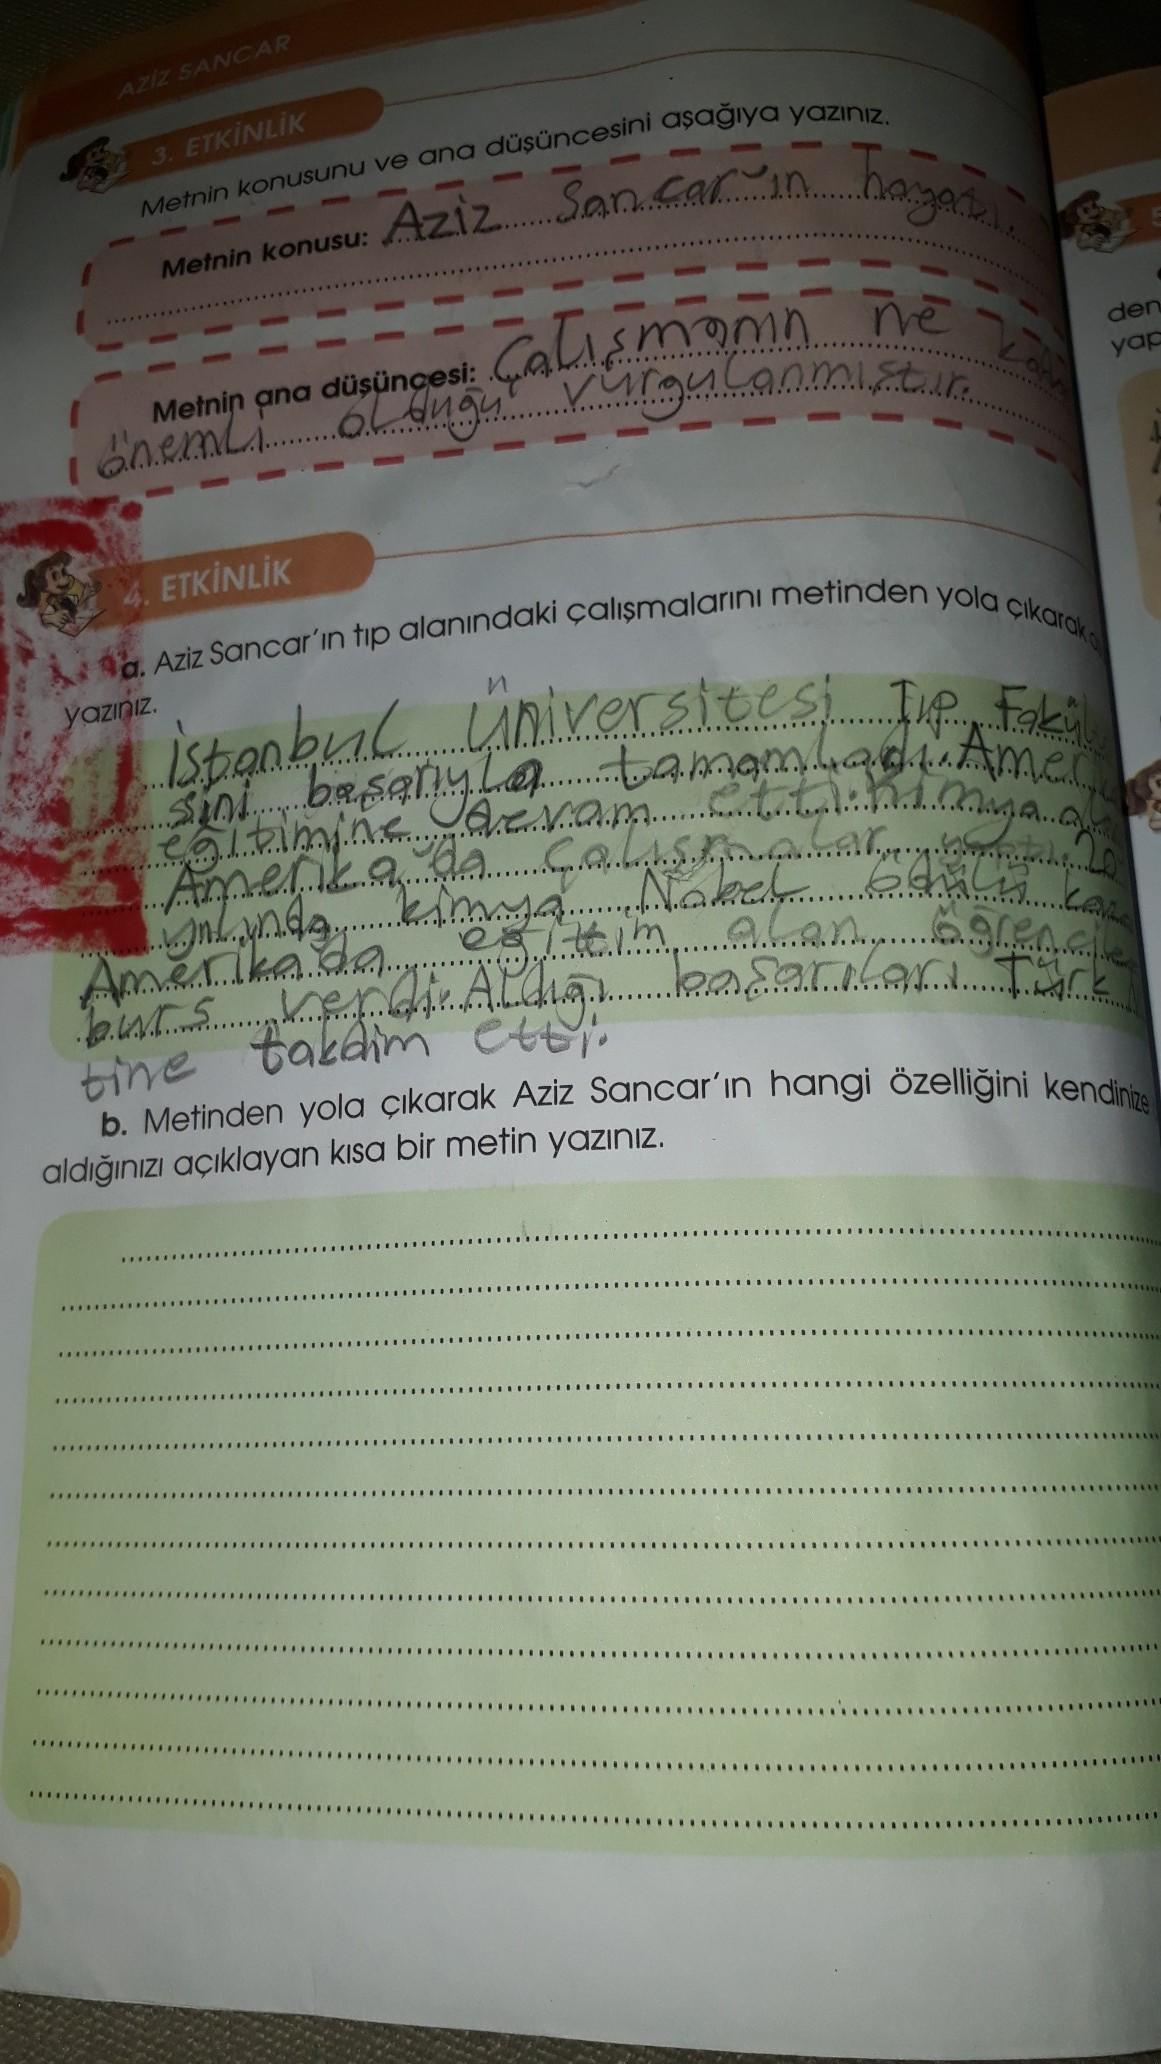 AZİZ SANCAR
3. ETKİNLİK
Metnin konusunu ve ana düşüncesini aşağıya yazınız.
Metnin konusu: Aziz Sancar'ın hayatı.
Metnin ana düşüncesi: Çalışmanın ne kadar
önemli olduğu vurgulanmıştır.
4. ETKİNLİK
a. Aziz Sancar'ın tıp alanındaki çalışmalarını metinden yola çıkarak
yazınız.
İstanbul Üniversitesi Tıp Fakül
sini başarıyla tamamladı. Amer
eğitimine devam etti. Kimya
Amerika'da çalışmalar yaptı. 20
yılında kimya Nobel ödülü
Amerika'da eğittim alan öğrencile
burs verdi. Aldığı başarıları Türk
tine takdim etti.
b. Metinden yola çıkarak Aziz Sancar'ın hangi özelliğini kendinize
aldığınızı açıklayan kısa bir metin yazınız.
5
den
yap